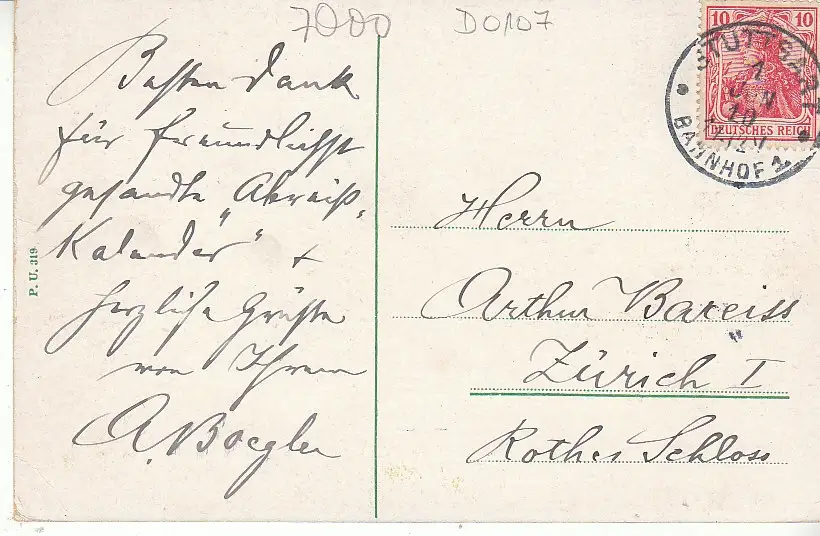 7000
D0107
Besten Dank
für freundlichst
gesandte „Abreiß-
Kalender" +
herzliche Grüße
von Ihrem
A. Boegler
10 10
DEUTSCHES REICH
STUTTGART
1
JAN
10
BAHNHOF 1
Herrn
Arthur Bareiss
Zürich I
Rothes Schloss
P. U. 319